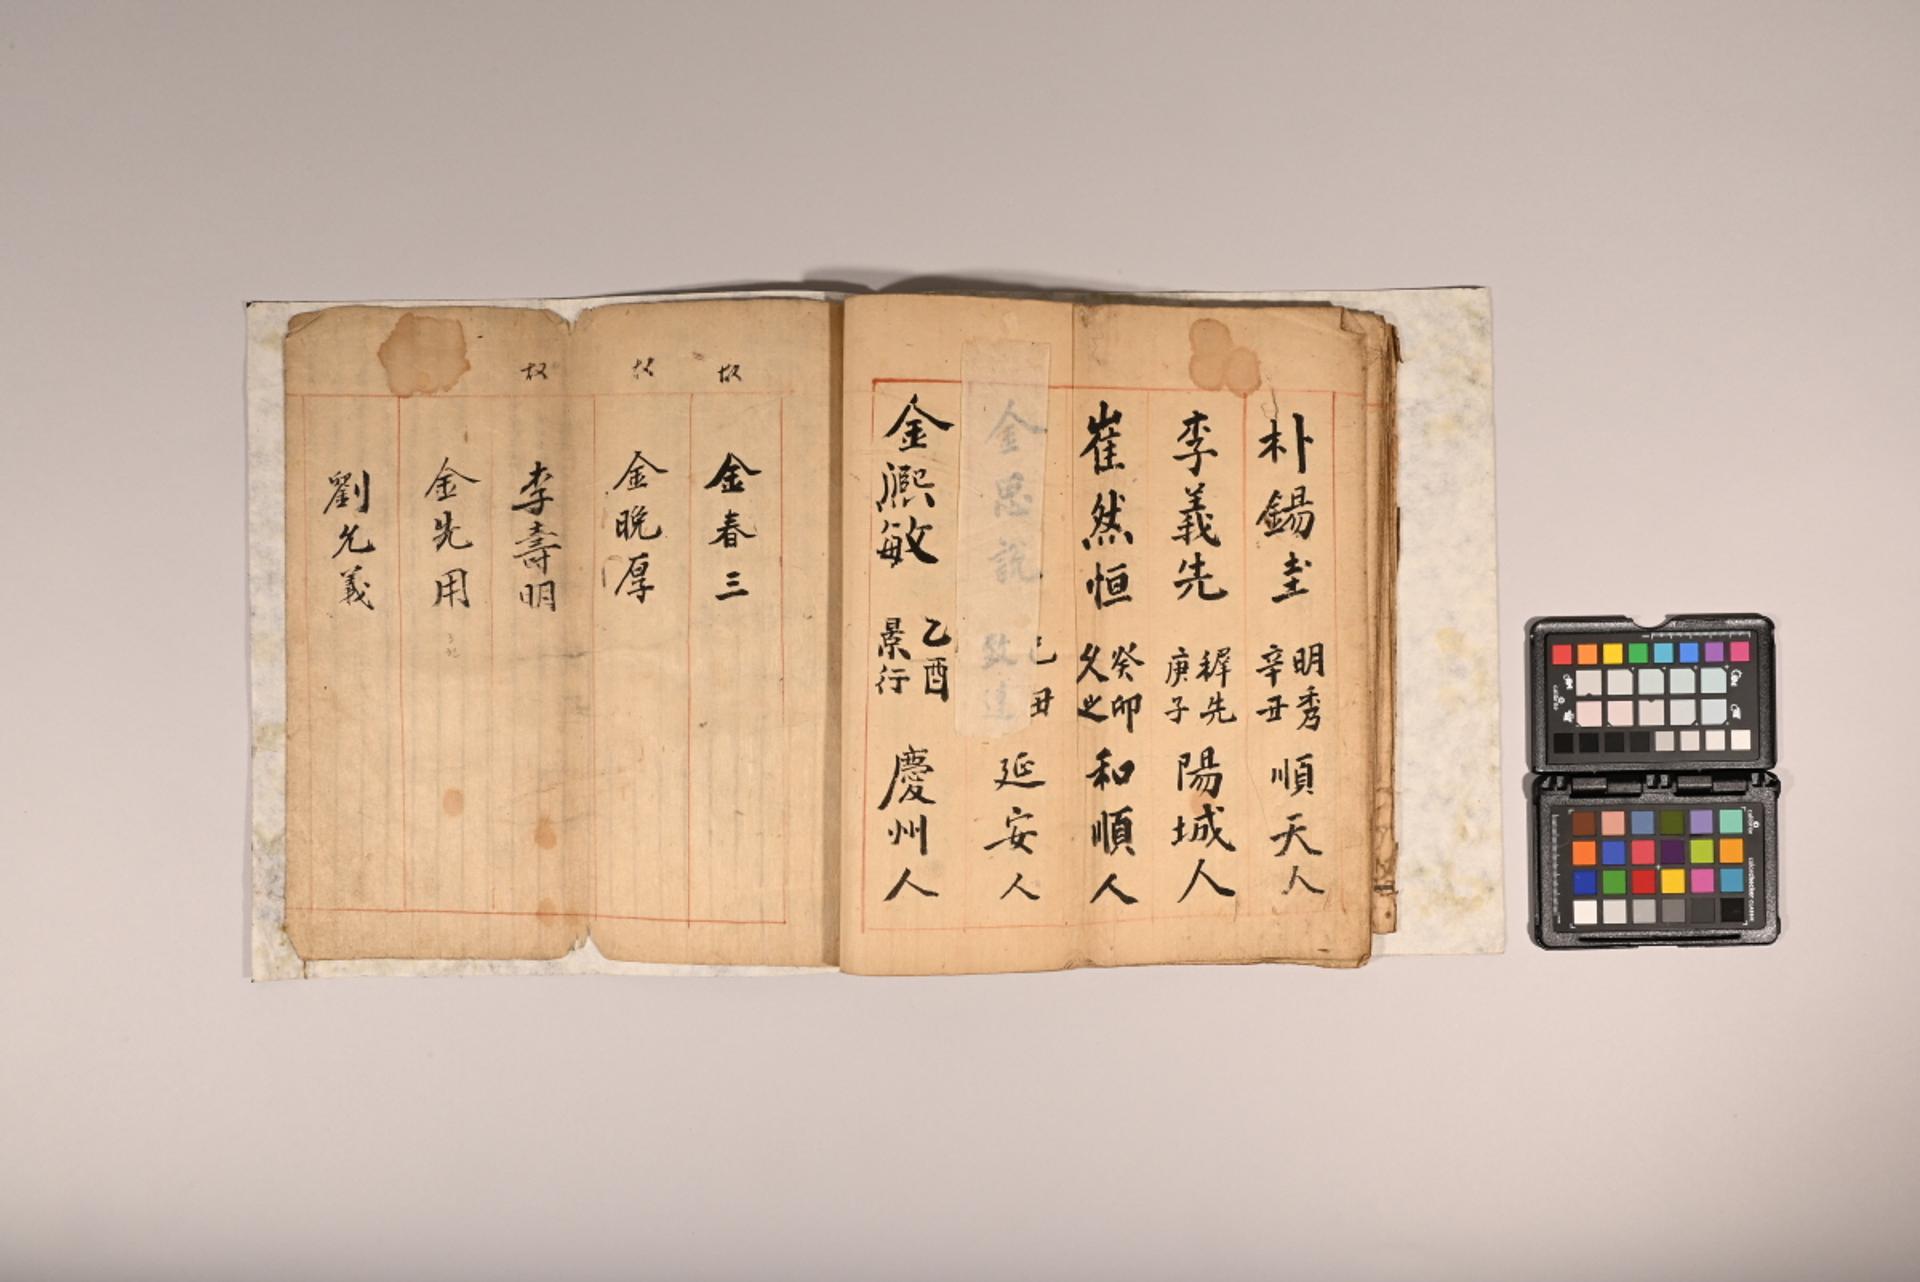 朴錫圭 明秀 辛丑 順天人
李義先 穉先 庚子 陽城人
崔然恒 癸卯 久也 和順人
金思說 己丑 致達 延安人
金熙敏 乙酉 景行 慶州人
故 金春三
故 金晩厚
故 李壽明
金先用
劉允義